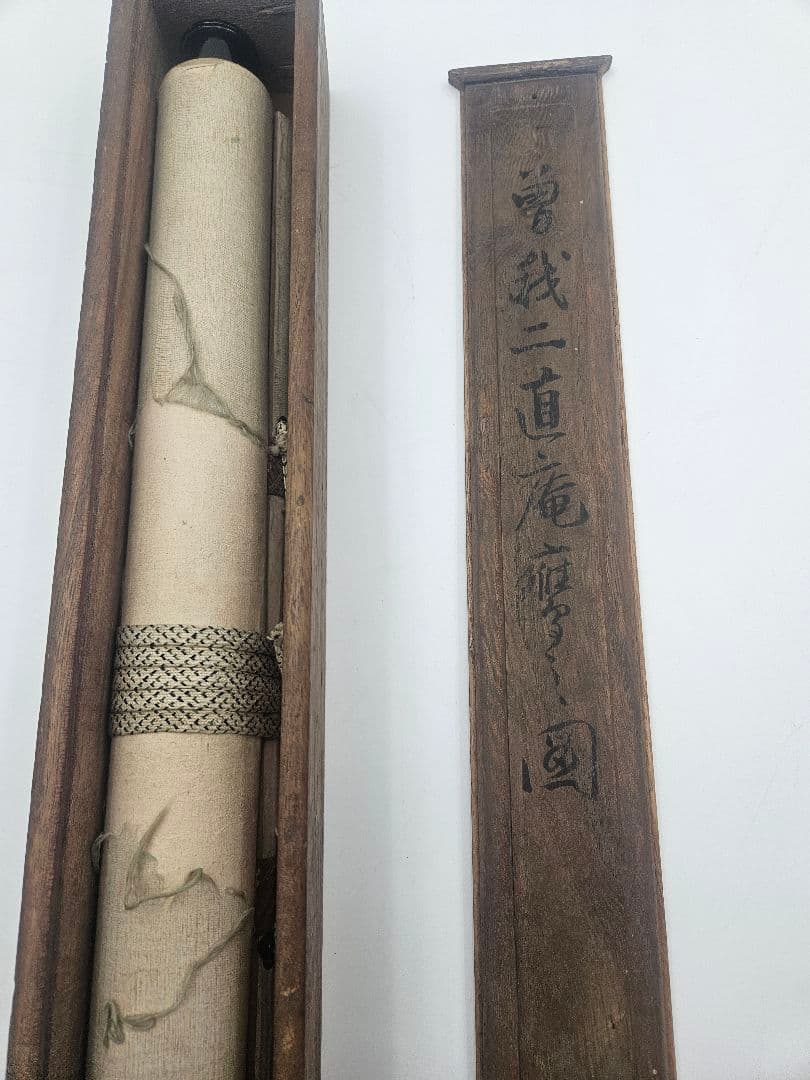 曽我二直庵鷹之圖